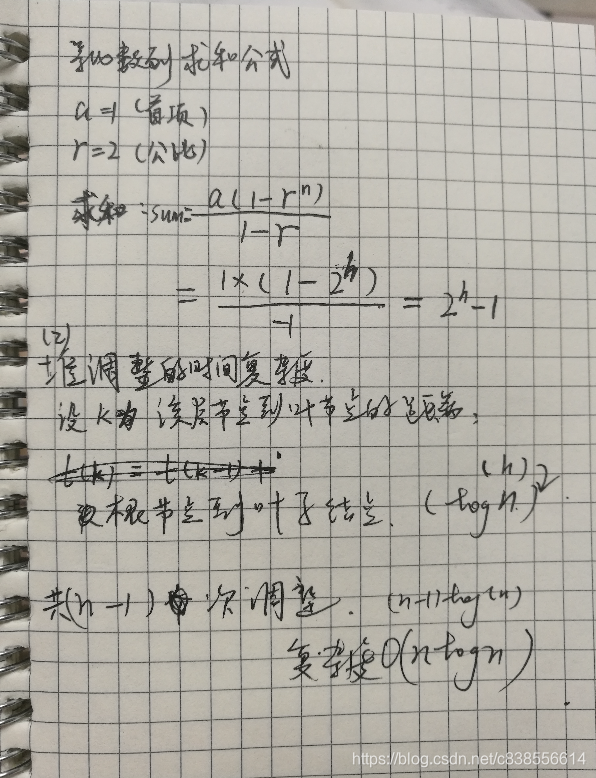 等比数列求和公式
a=1 (首项)
r=2 (公比)
求和:sum= a(1-rⁿ) / 1-r
= 1×(1-2ʰ) / -1 = 2ʰ-1
(2)
堆调整的时间复杂度.
设K为该父节点到叶节点的距离;
t(k) = t(k-1)+
取根节点到叶子结点. (h) (logn)
共(n-1)次调整. (n-1)log(n)
复杂度O(nlogn)
https://blog.csdn.net/c838556614